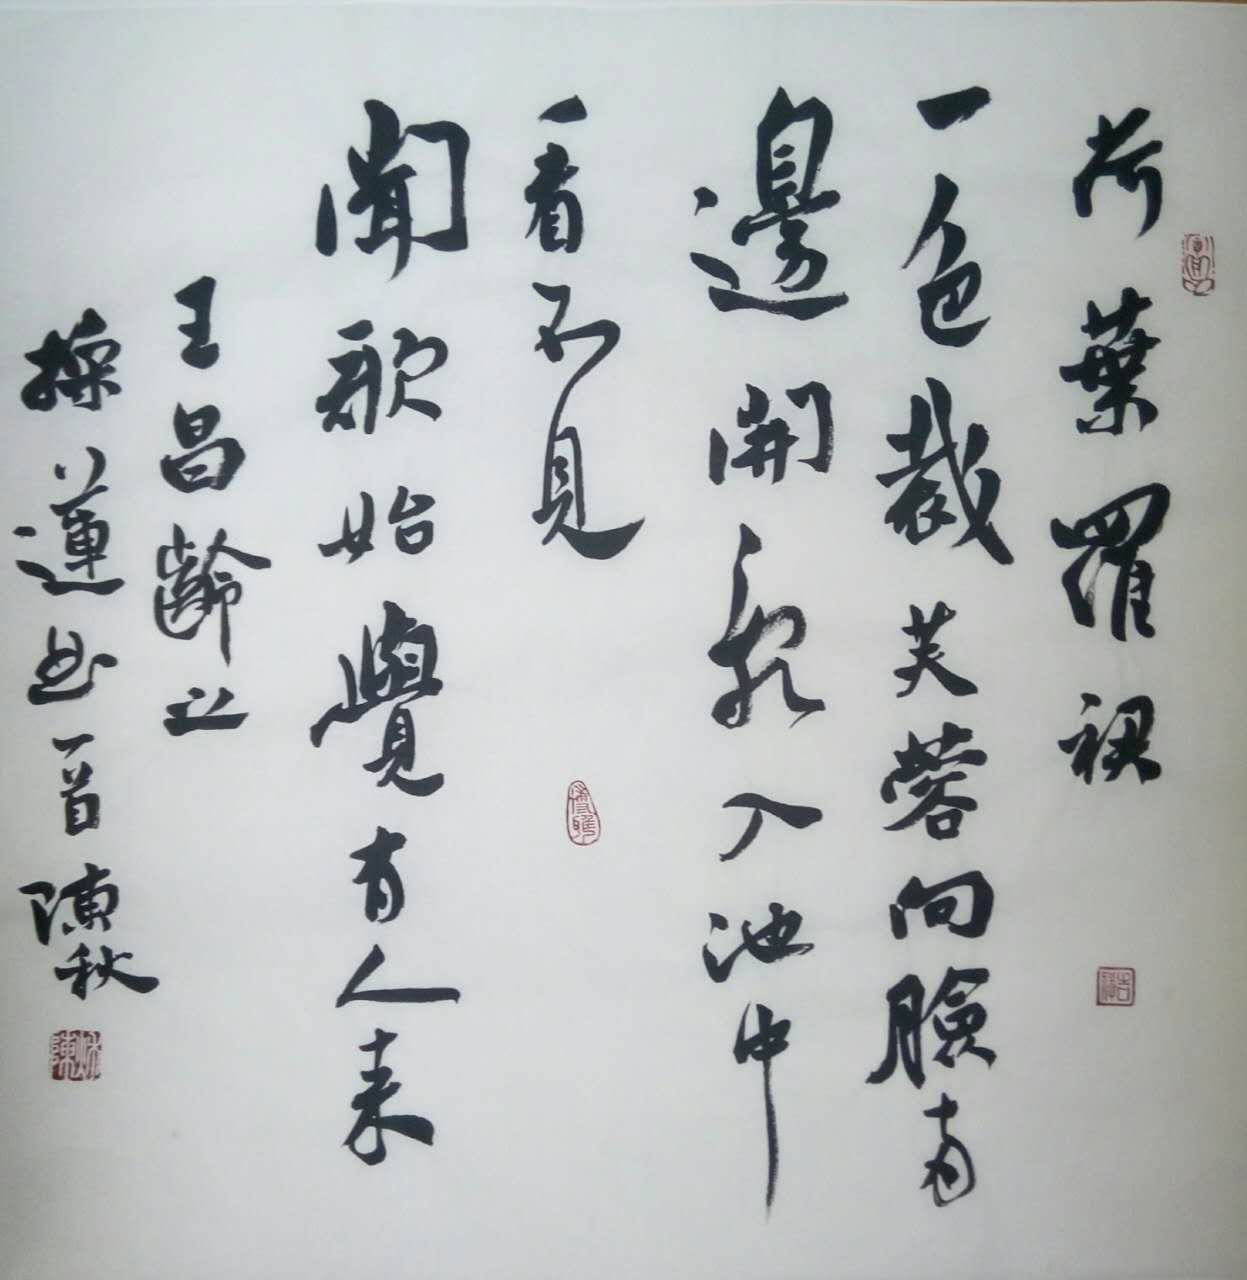 荷葉羅裙
一色裁芙蓉向臉兩
邊開亂入池中
看不見
聞歌始覺有人来
王昌齡之
採蓮曲一首 陳秋